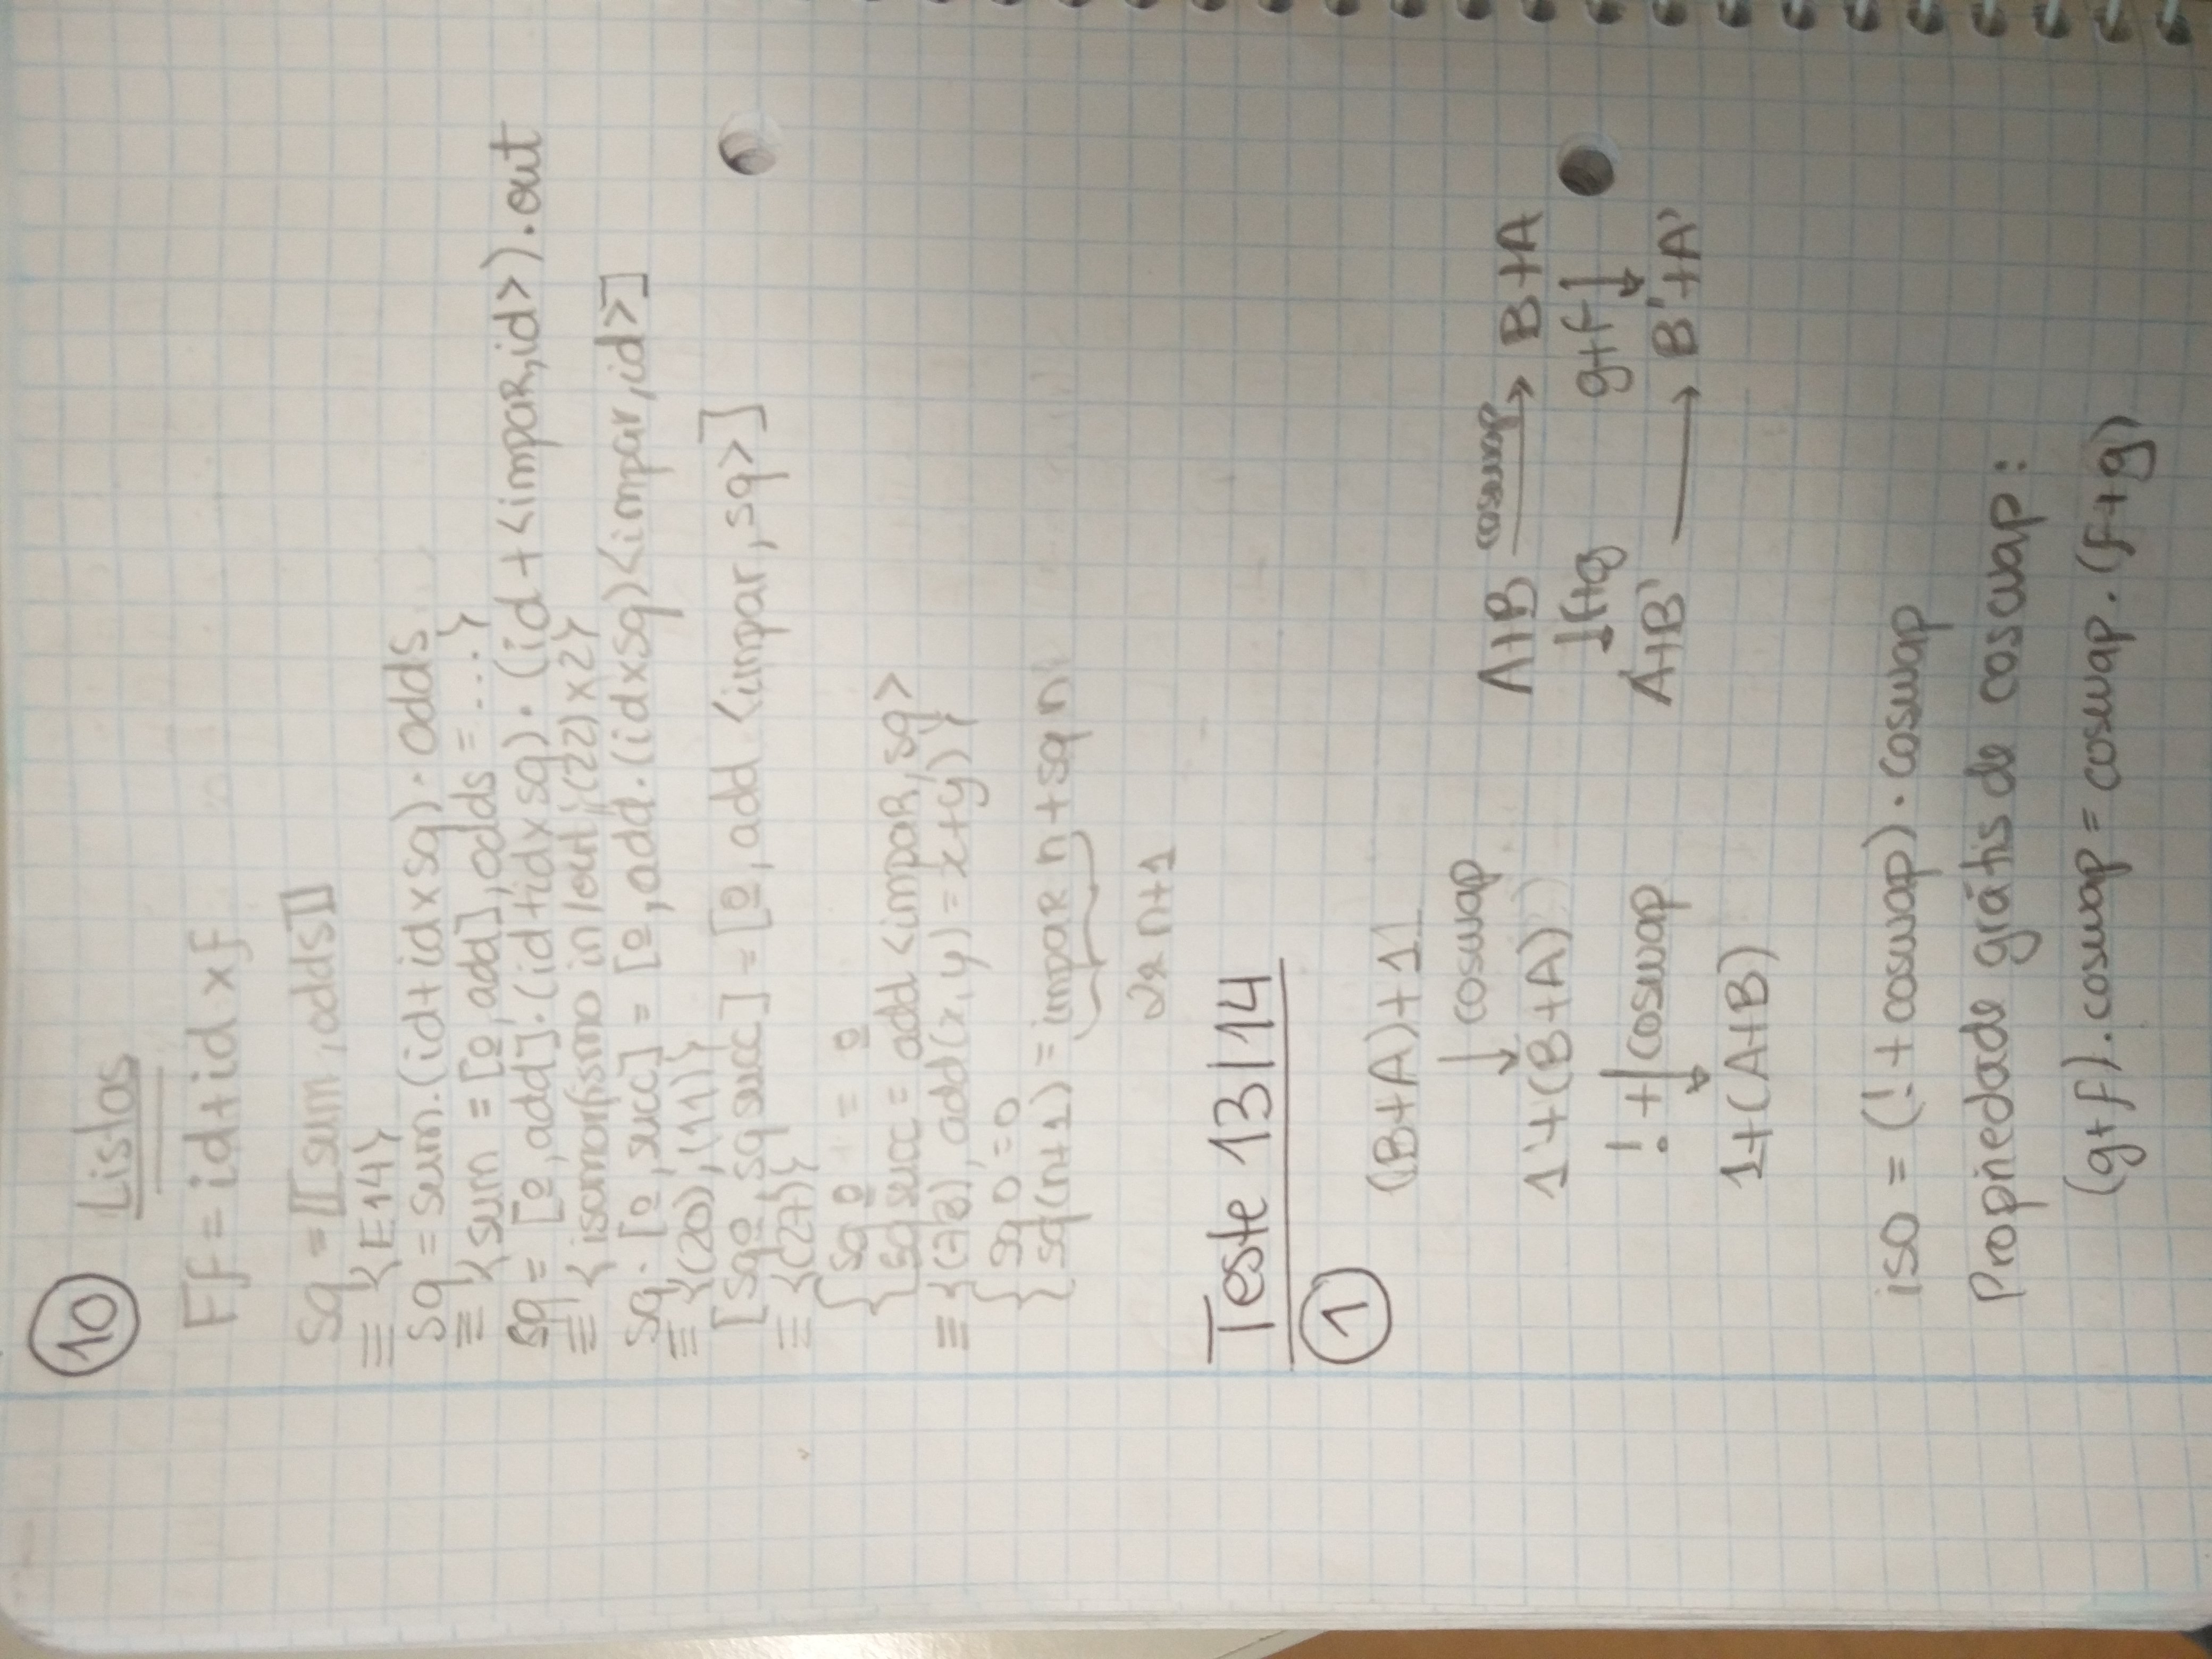 10 Listas
Ff = id + id × f
sq = [[sum, odds]]
≡ {E14}
sq = sum.(id+id×sq) · odds
≡ {sum = [0, add], odds = ...}
sq = [0, add].(id+id×sq) · (id + <impar, id>).out
≡ {isomorfismo in/out; (22)×2}
sq · [0, succ] = [0, add.(id×sq)<impar, id>]
≡ {(20), (11)}
[sq 0, sq succ] = [0, add <impar, sq>]
≡ {(27)}
{ sq 0 = 0
{ sq succ = add <impar, sq>
≡ {(73), add(x, y) = x+y) }
{ sq 0 = 0
{ sq(n+1) = impar n + sq n
2×n+1
Teste 13/14
1
(B+A)+1
↓ coswap
1+(B+A)
! + ↓ coswap
1+(A+B)
A+B coswap → B+A
↓ f+g g+f ↓
A'+B' → B'+A'
iso = (! + coswap) · coswap
Propriedade grátis de coswap:
(g+f).coswap = coswap.(f+g)